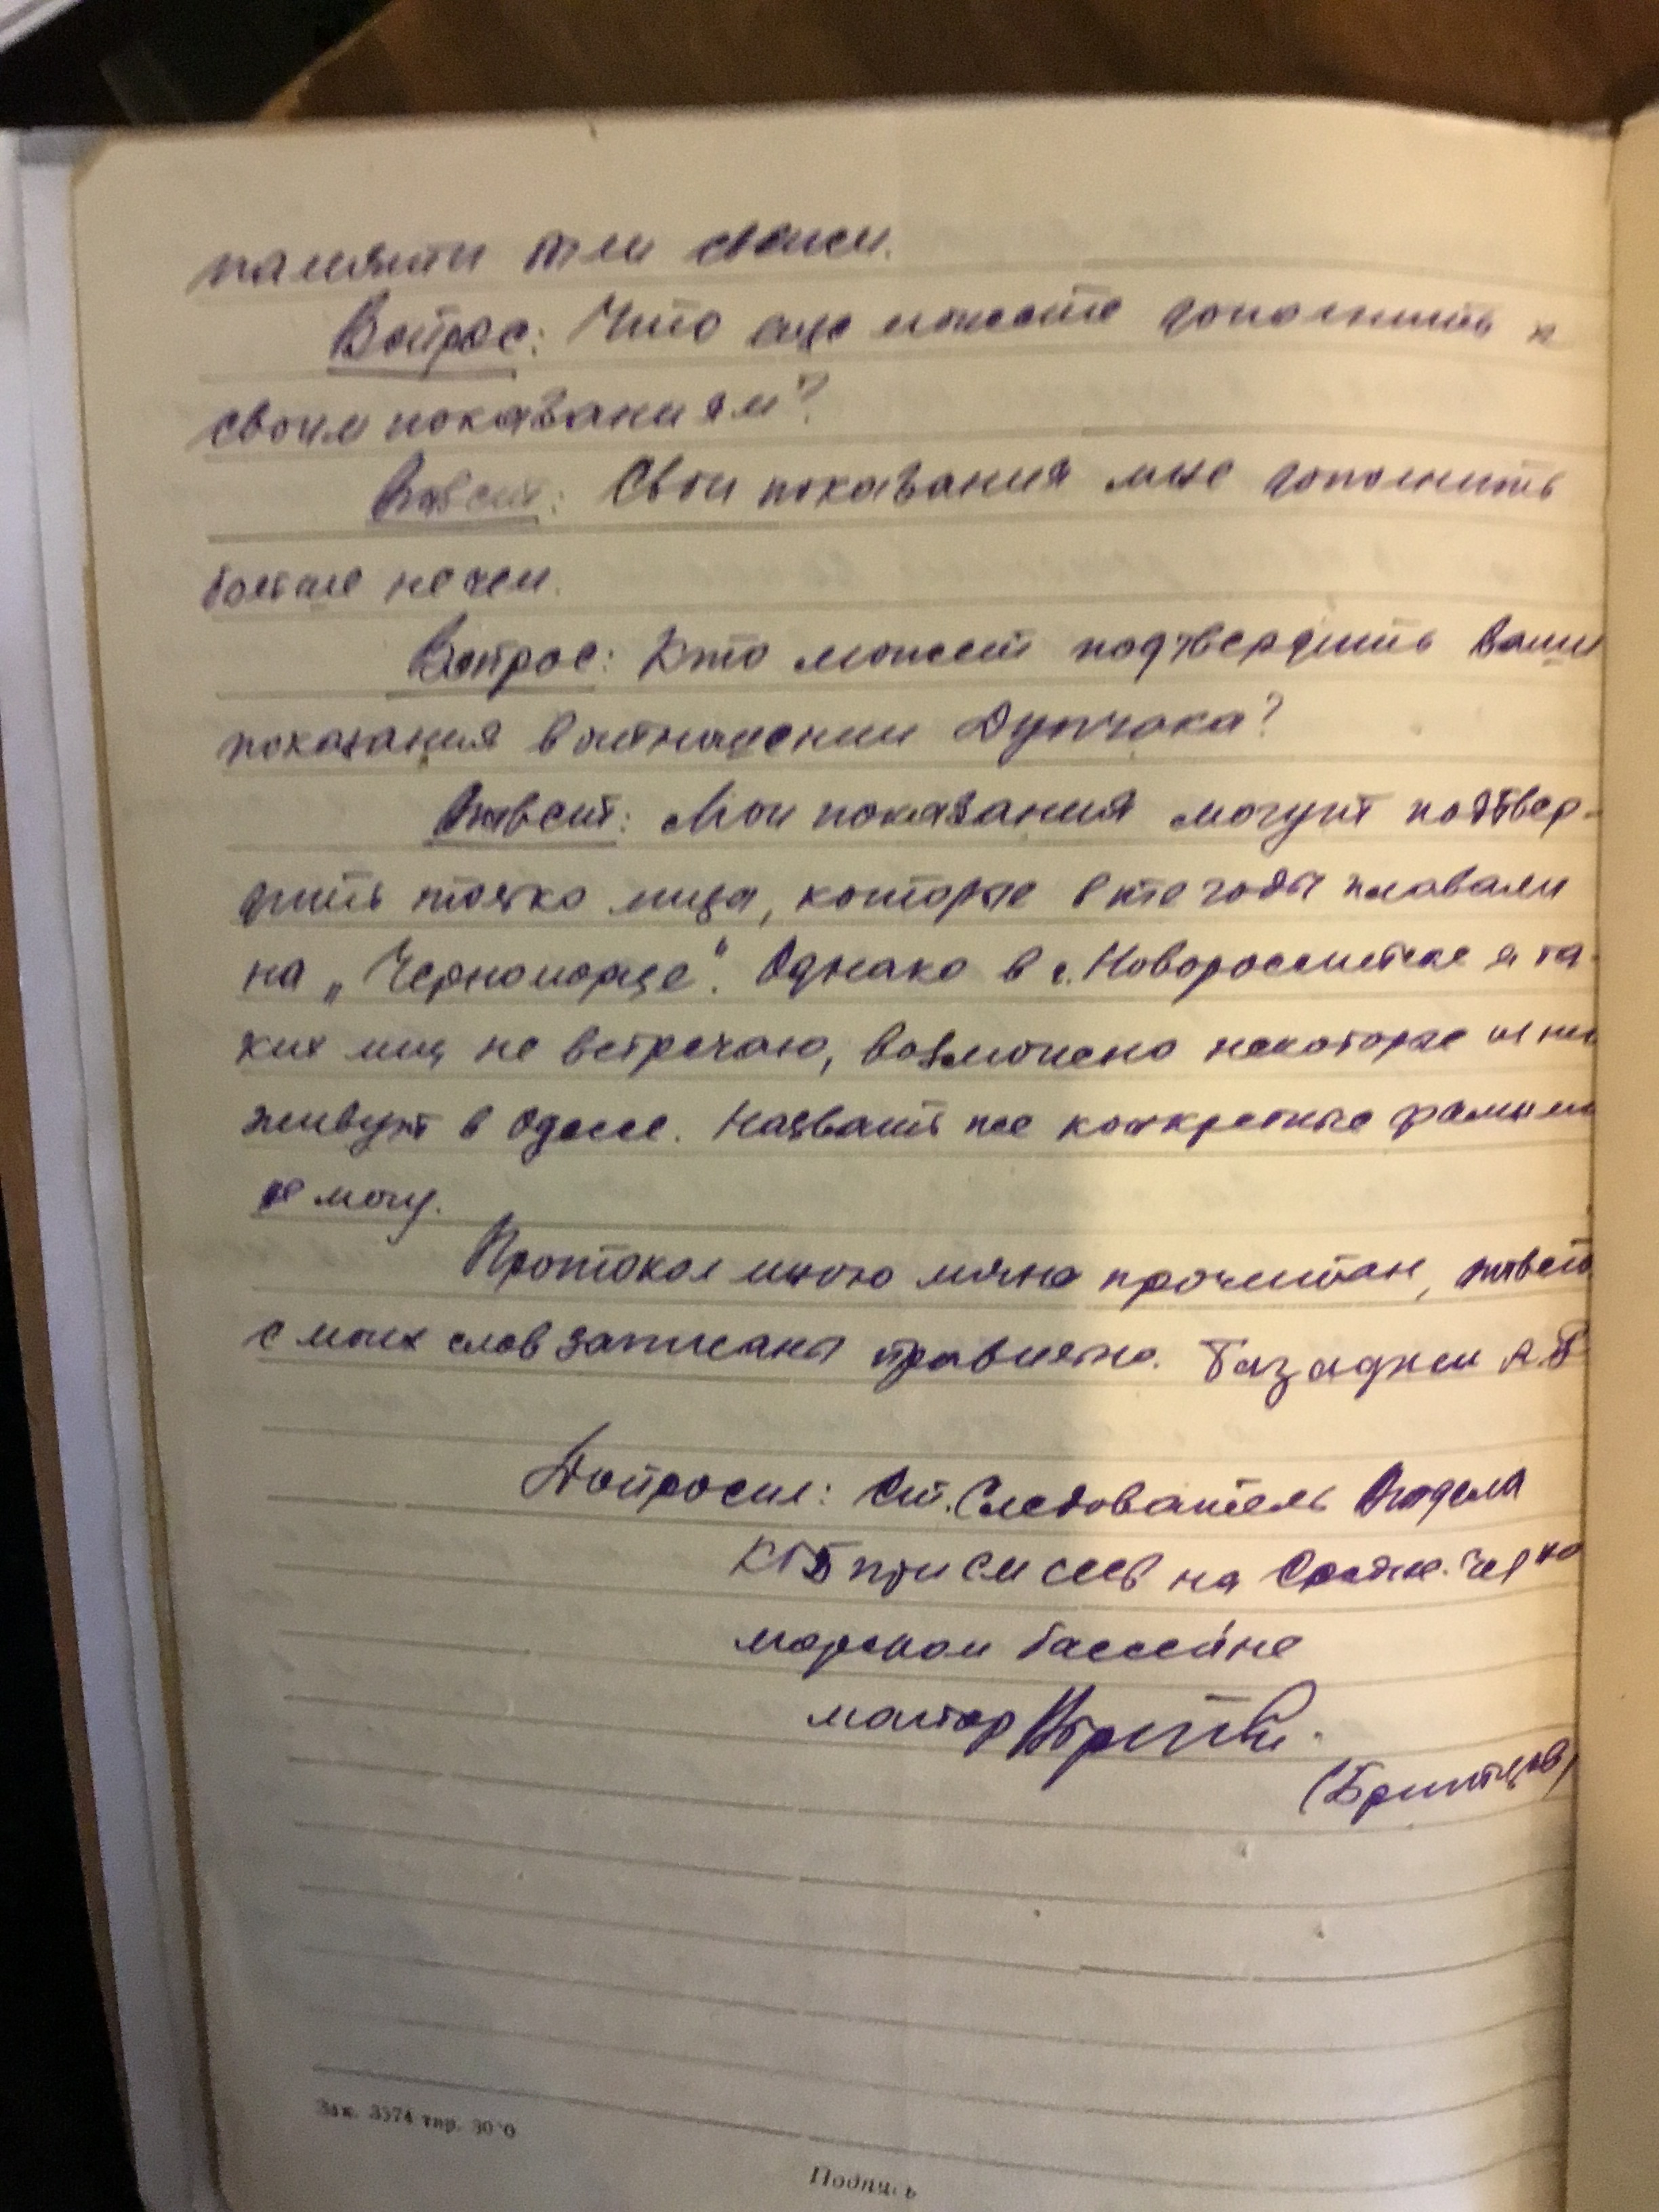 памяти
Вопрос: Что еще можете дополнить к
своим показаниям?
Ответ: Свои показания мне дополнить
больше нечем.
Вопрос: Кто может подтвердить Ваши
показания в отношении Дупчака?
Ответ: Мои показания могут подтвер-
дить только лица, которые в те годы плавали
на „Черноморце". Однако в г. Новороссийске я та-
ких лиц не встречаю, возможно некоторые из них
живут в Одессе. Назвать же конкретные фамилии
не могу.
Протокол мною лично прочитан, ответы
с моих слов записаны правильно. Базаджи А.Б
Допросил: Ст. Следователь Отдела
КГБ при СМ СССР на Средне-Черно
морском бассейне
майор
(Бритцов)
Зак. 3574 тир.
Подпись